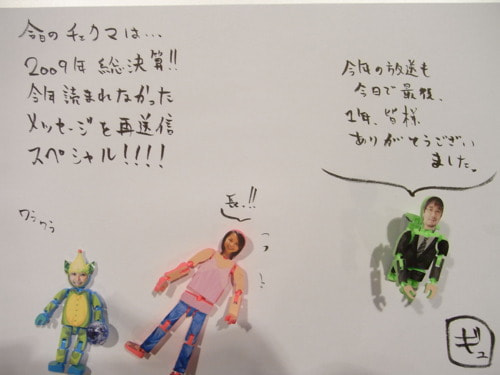 今日のチェクマは…
2009年 総決算!!
今年読まれなかった
メッセージを再送信
スペシャル!!!!
今年の放送も
今日で最後、
1年、皆様
ありがとうござい
ました。
長っ!!
ワラワラ
ギュ